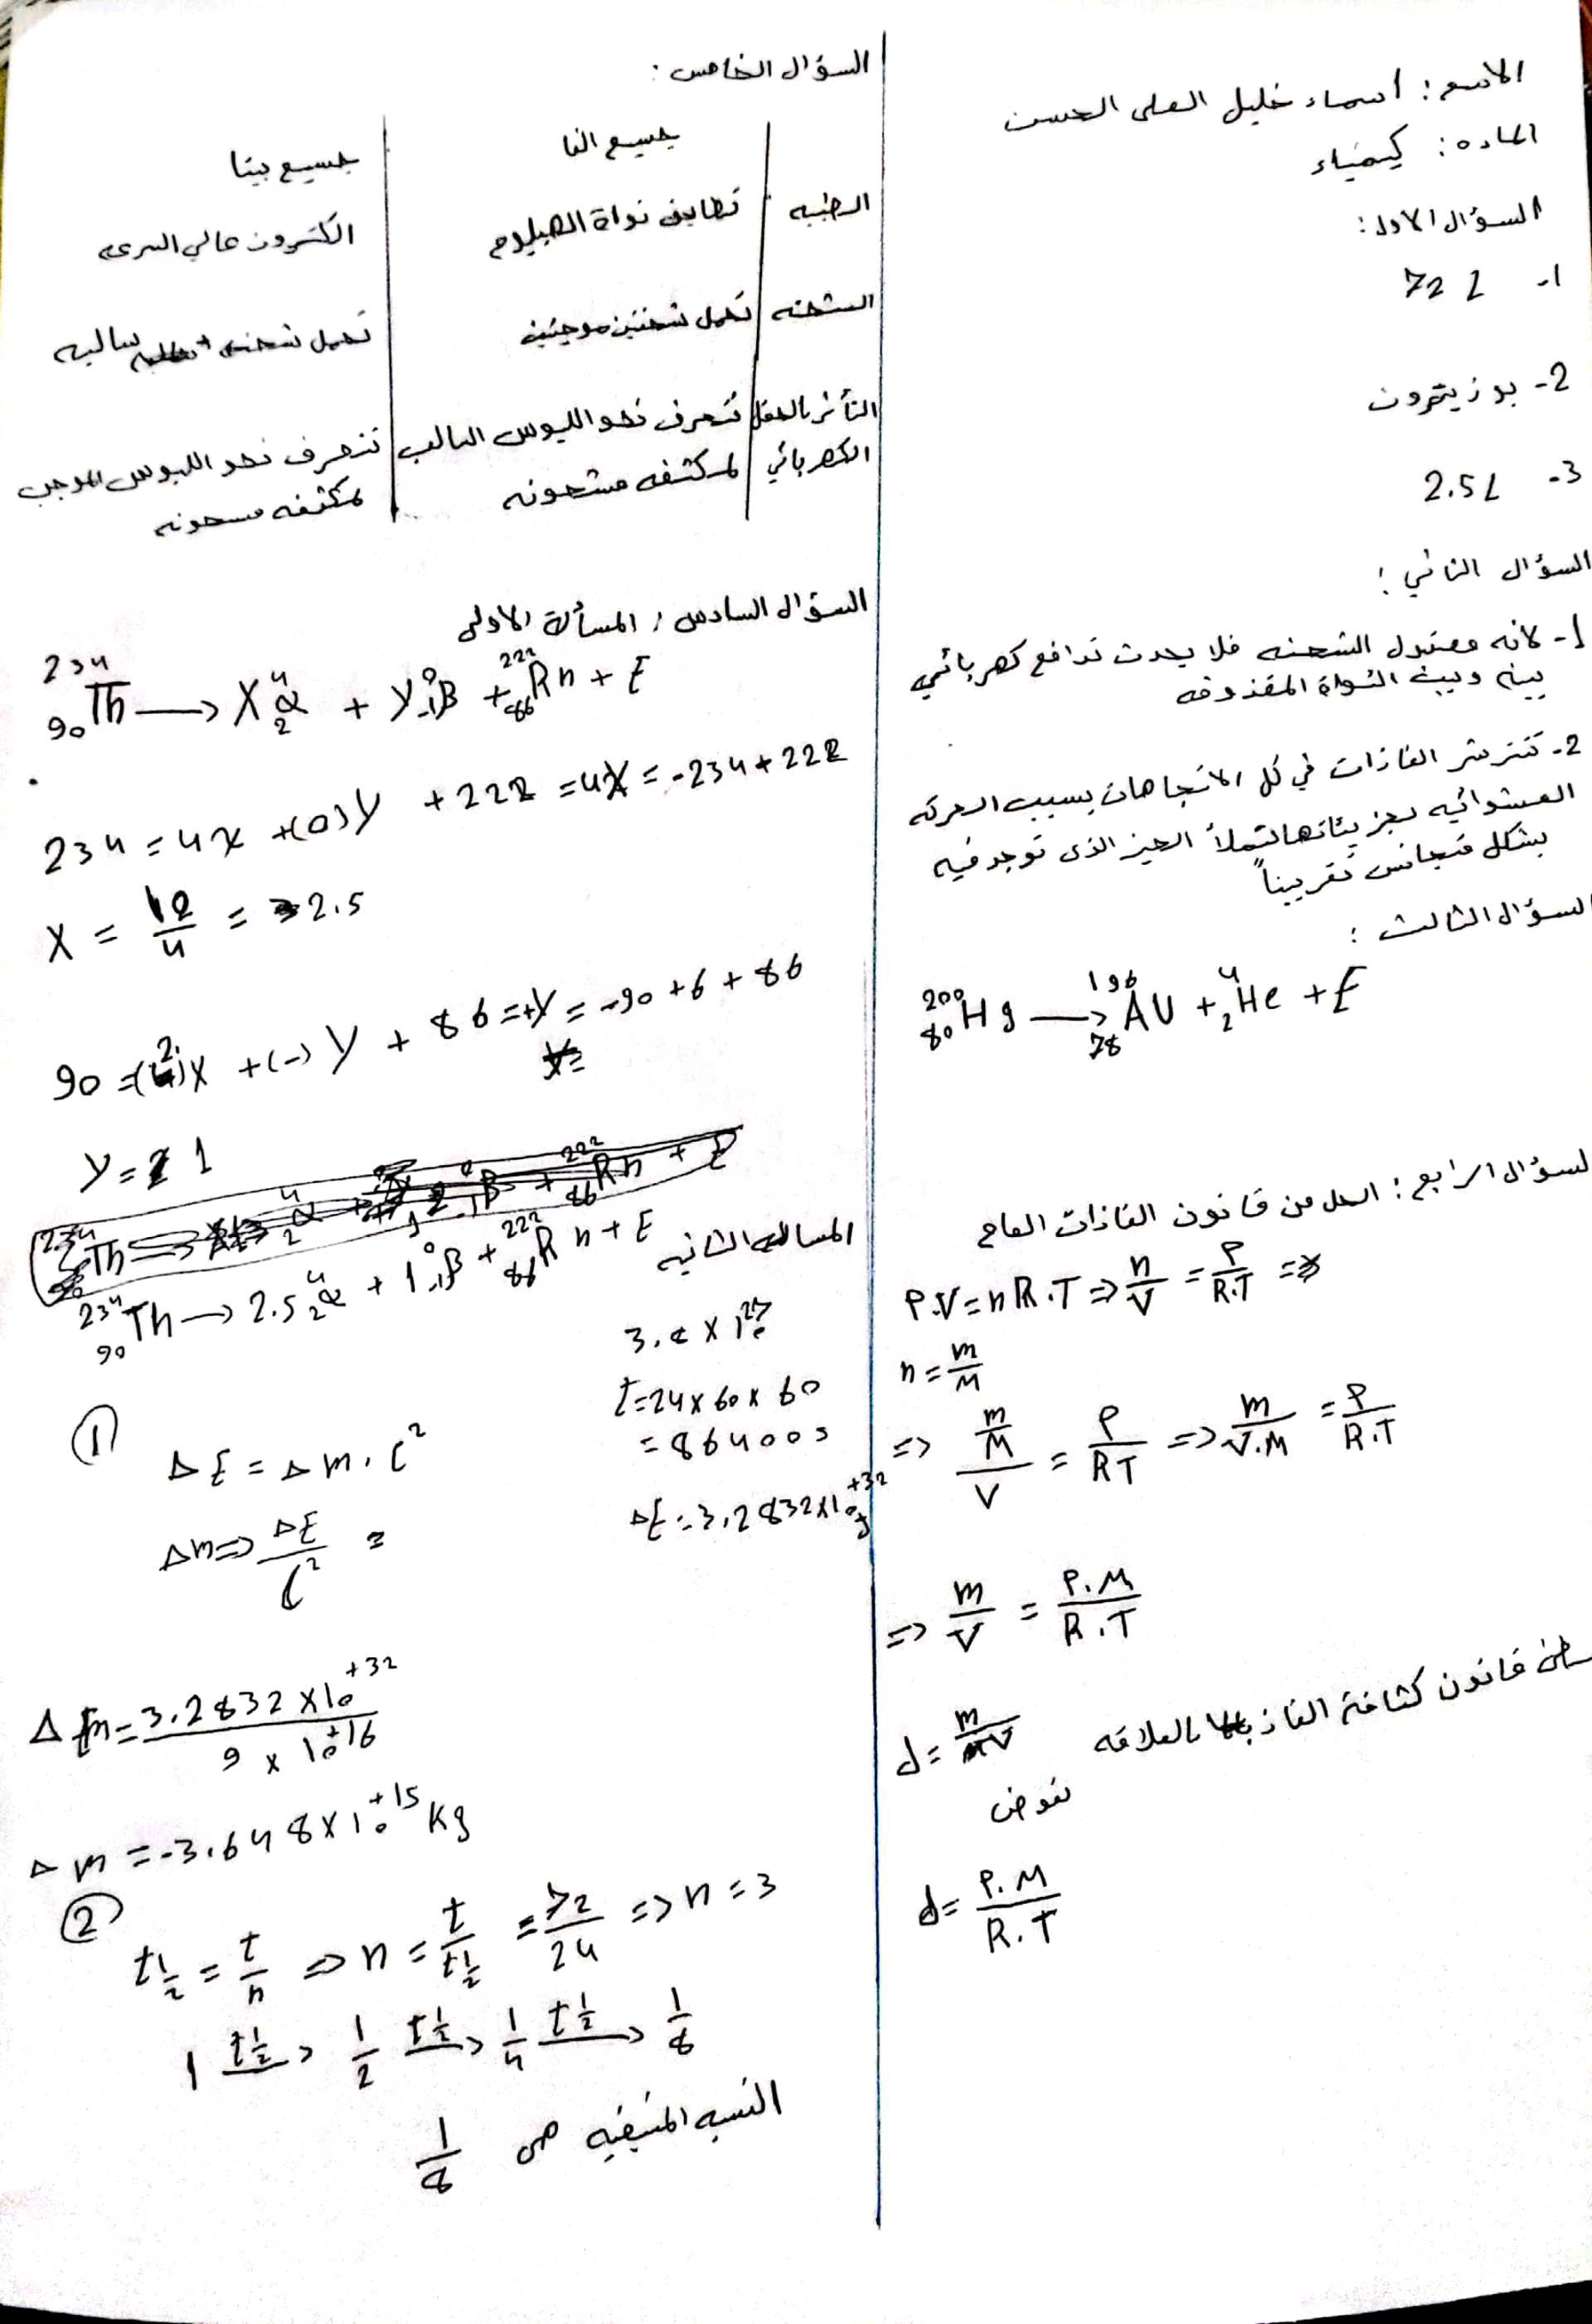 الاسم: اسماء خليل العلي الحسن
الماده: كيمياء
السؤال الاول:
1- 72 L
2- بوزيترون
3- 2.5L
السؤال الثاني:
1- لانه معتدل الشحنه فلا يحدث تدافع كهربائي
بينه وبين النواة المقذوفه
2- تنتشر الغازات في كل الاتجاهات بسبب الحركه
العشوائيه لجزيئاتها لتملأ الحيز الذي توجد فيه
بشكل متجانس تقريباً
السؤال الثالث:
²⁰⁰₈₀Hg → ¹⁹⁶₇₈AU + ⁴₂He + E
لسؤال الرابع: الحل من قانون الغازات العام
P.V = n R.T => n/V = P/R.T =>
n = m/M
=> (m/M)/V = P/RT => m/V.M = P/R.T
=> m/V = P.M/R.T
قانون كثافة الغاز بالعلاقه d = m/V
نعوض
d = P.M/R.T
السؤال الخامس:
جسيم الفا جسيم بيتا
الطبيه تطابق نواة الهيليوم الكترون عالي السرعه
الشحنه تحمل شحنتين موجبتين تحمل شحنه سالبه
التأثر بالحقل تنحرف نحو اللبوس السالب تنحرف نحو اللبوس الموجب
الكهربائي لمكثفه مشحونه لمكثفه مسحونه
السؤال السادس: المسألة الاولى
²³⁴₉₀Th → X ⁴₂α + Y ⁰₋₁β + ²²²₈₆Rn + E
234 = 4x + (0)Y + 222 = 4X = -234 + 222
X = 12/4 = 2.5
90 = (2)X + (-) Y + 86 = +Y = -90 + 6 + 86
Y = 1
²³⁴₉₀Th → 2.5 ⁴₂α + 1 ⁰₋₁β + ²²²₈₆Rn + E
المساله الثانيه
t = 24 x 60 x 60
= 86400s
ΔE = 3.2832 x 10⁺³² J
① ΔE = Δm . C²
Δm => ΔE/C² =
Δm = 3.2832 x 10⁺³² / 9 x 10⁺¹⁶
Δm = -3.648 x 10⁺¹⁵ Kg
② t½ = t/n => n = t/t½ = 72/24 => n = 3
1 t½→ 1/2 t½→ 1/4 t½→ 1/8
النسبه المتبقيه هي 1/8